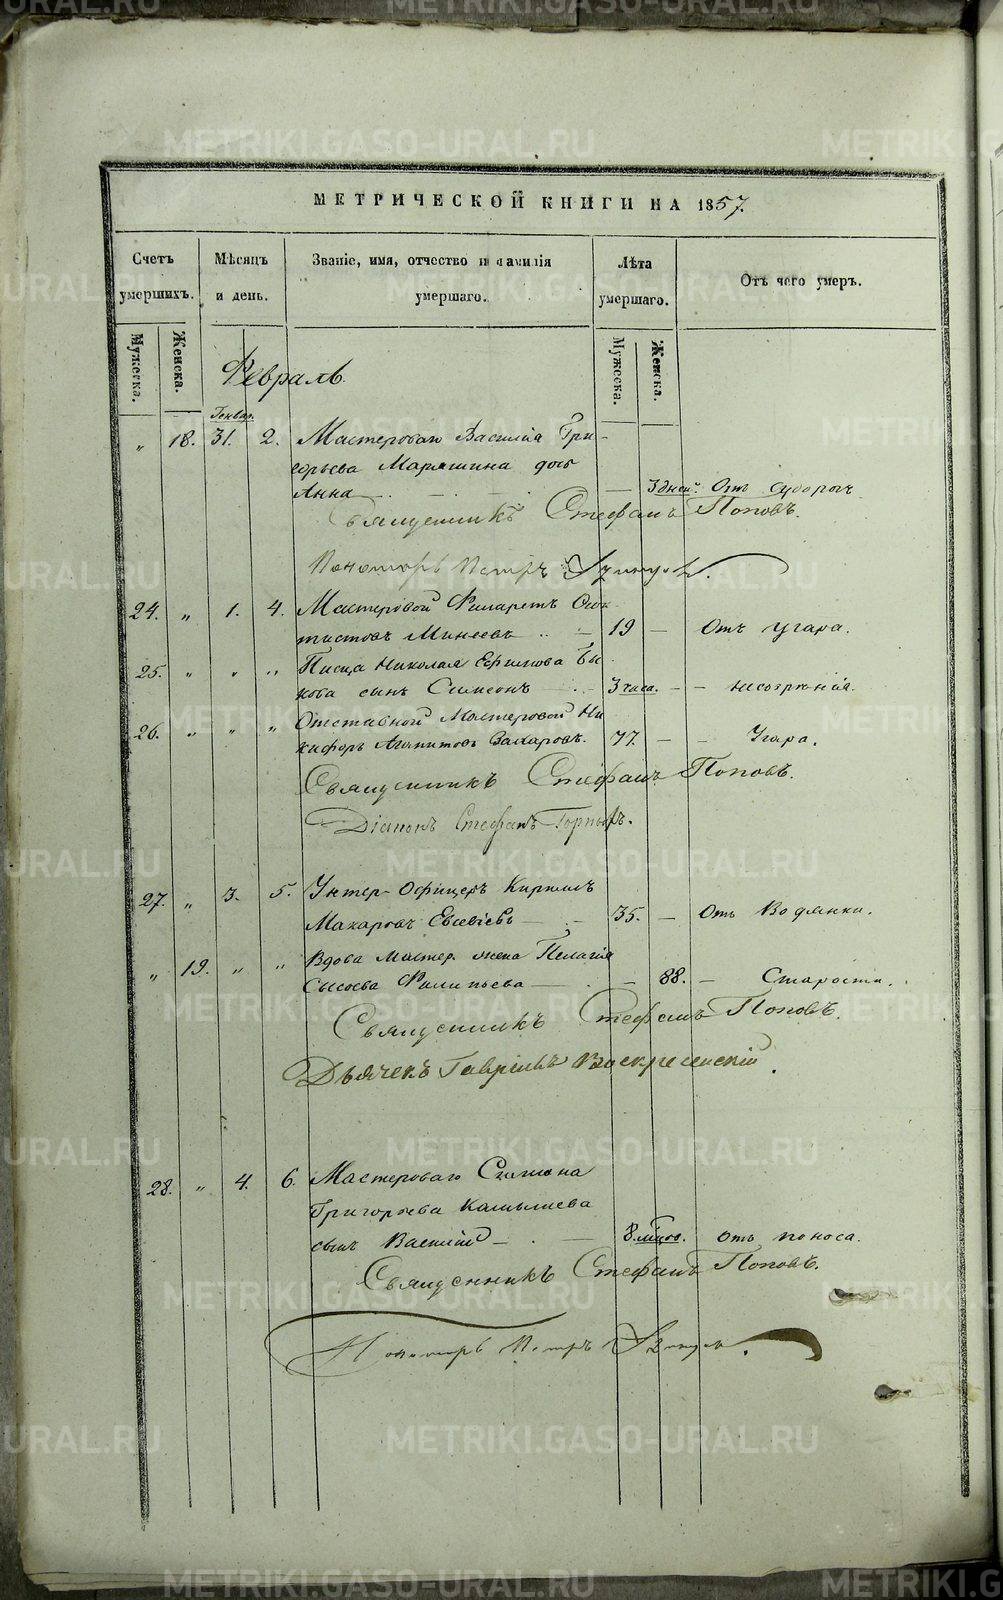 МЕТРИЧЕСКОЙ КНИГИ НА 1857.
Счетъ умершихъ.
Мѣсяцъ и день.
Званіе, имя, отчество и фамилія умершаго.
Лѣта умершаго.
Отъ чего умеръ.
Мужеска. Женска.
Мужеска. Женска.
Февраль.
Генвар.
„ 18. 31. 2. Мастероваго Василія Гри-
горьева Маряшина дочь
Анна — 3 дней. Отъ судорогъ
Священникъ Стефанъ Поповъ.
Пономарь Петръ
24. „ 1. 4. Мастеровой Филаретъ Ѳеок-
тистовъ Минеевъ — 19 — Отъ угара.
25. „ „ „ Писца Николая Ефимова Бы-
кова сынъ Симеонъ — 3 часа. — несозрѣнія.
26. „ „ „ Отставной Мастеровой Ни-
кифоръ Агапитовъ Захаровъ. 77. — Угара.
Священникъ Стефанъ Поповъ.
Діаконъ Стефанъ
27. „ 3. 5. Унтер-Офицеръ Кирилъ
Макаровъ Евсевіевъ — 35. — Отъ Водянки.
„ 19. „ „ Вдова Мастер. жена Пелагія
Сысоева Филипьева — 88. — Старости.
Священникъ Стефанъ Поповъ.
Дьячекъ Гавріилъ Воскресенскій.
28. „ 4. 6. Мастероваго Симеона
Григорьева Камышева
сынъ Василій — 8 мѣсяц. отъ поноса.
Священникъ Стефанъ Поповъ.
Пономарь Петръ
METRIKI.GASO-URAL.RU